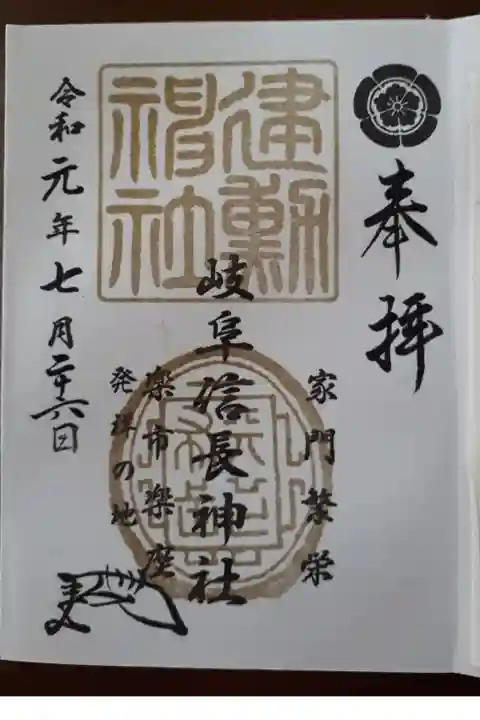 奉拝
家門繁栄
建勲神社
岐阜信長神社
楽市楽座
発祥の地
令和元年七月二十六日